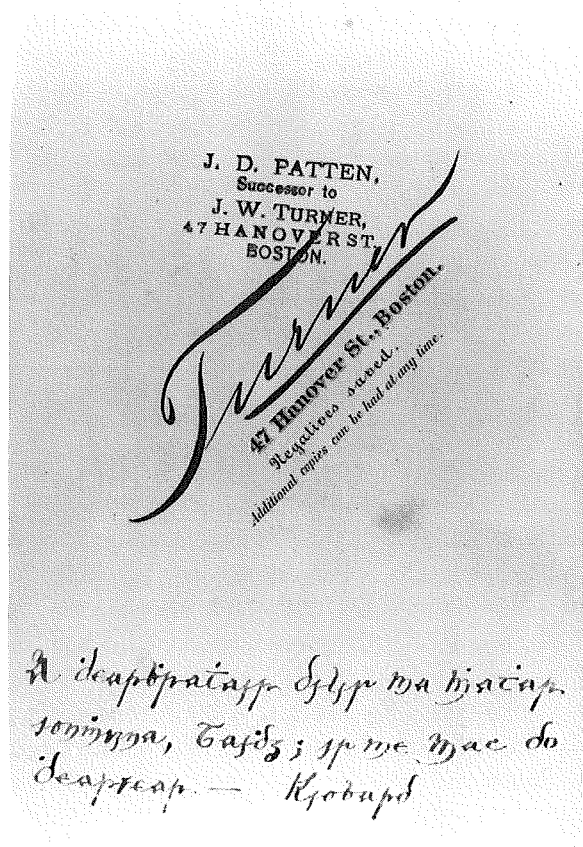 J. D. PATTEN,
Successor to
J. W. TURNER,
47 HANOVER ST.
BOSTON.
Turner
47 Hanover St., Boston.
Negatives saved.
Additional copies can be had at any time.
A ḋearbraṫair ḋilis na
Taiḋg; is me mac do
— Riobard